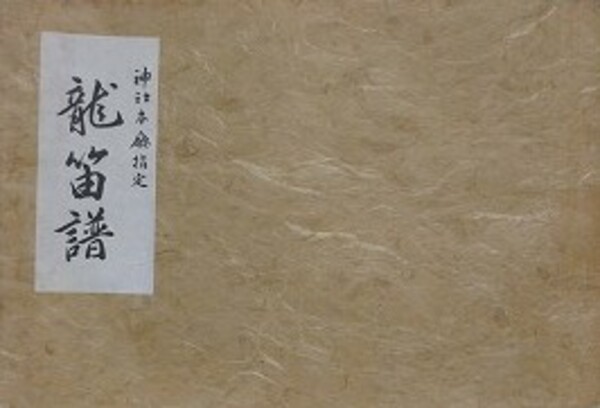 神社本廳指定
龍笛譜